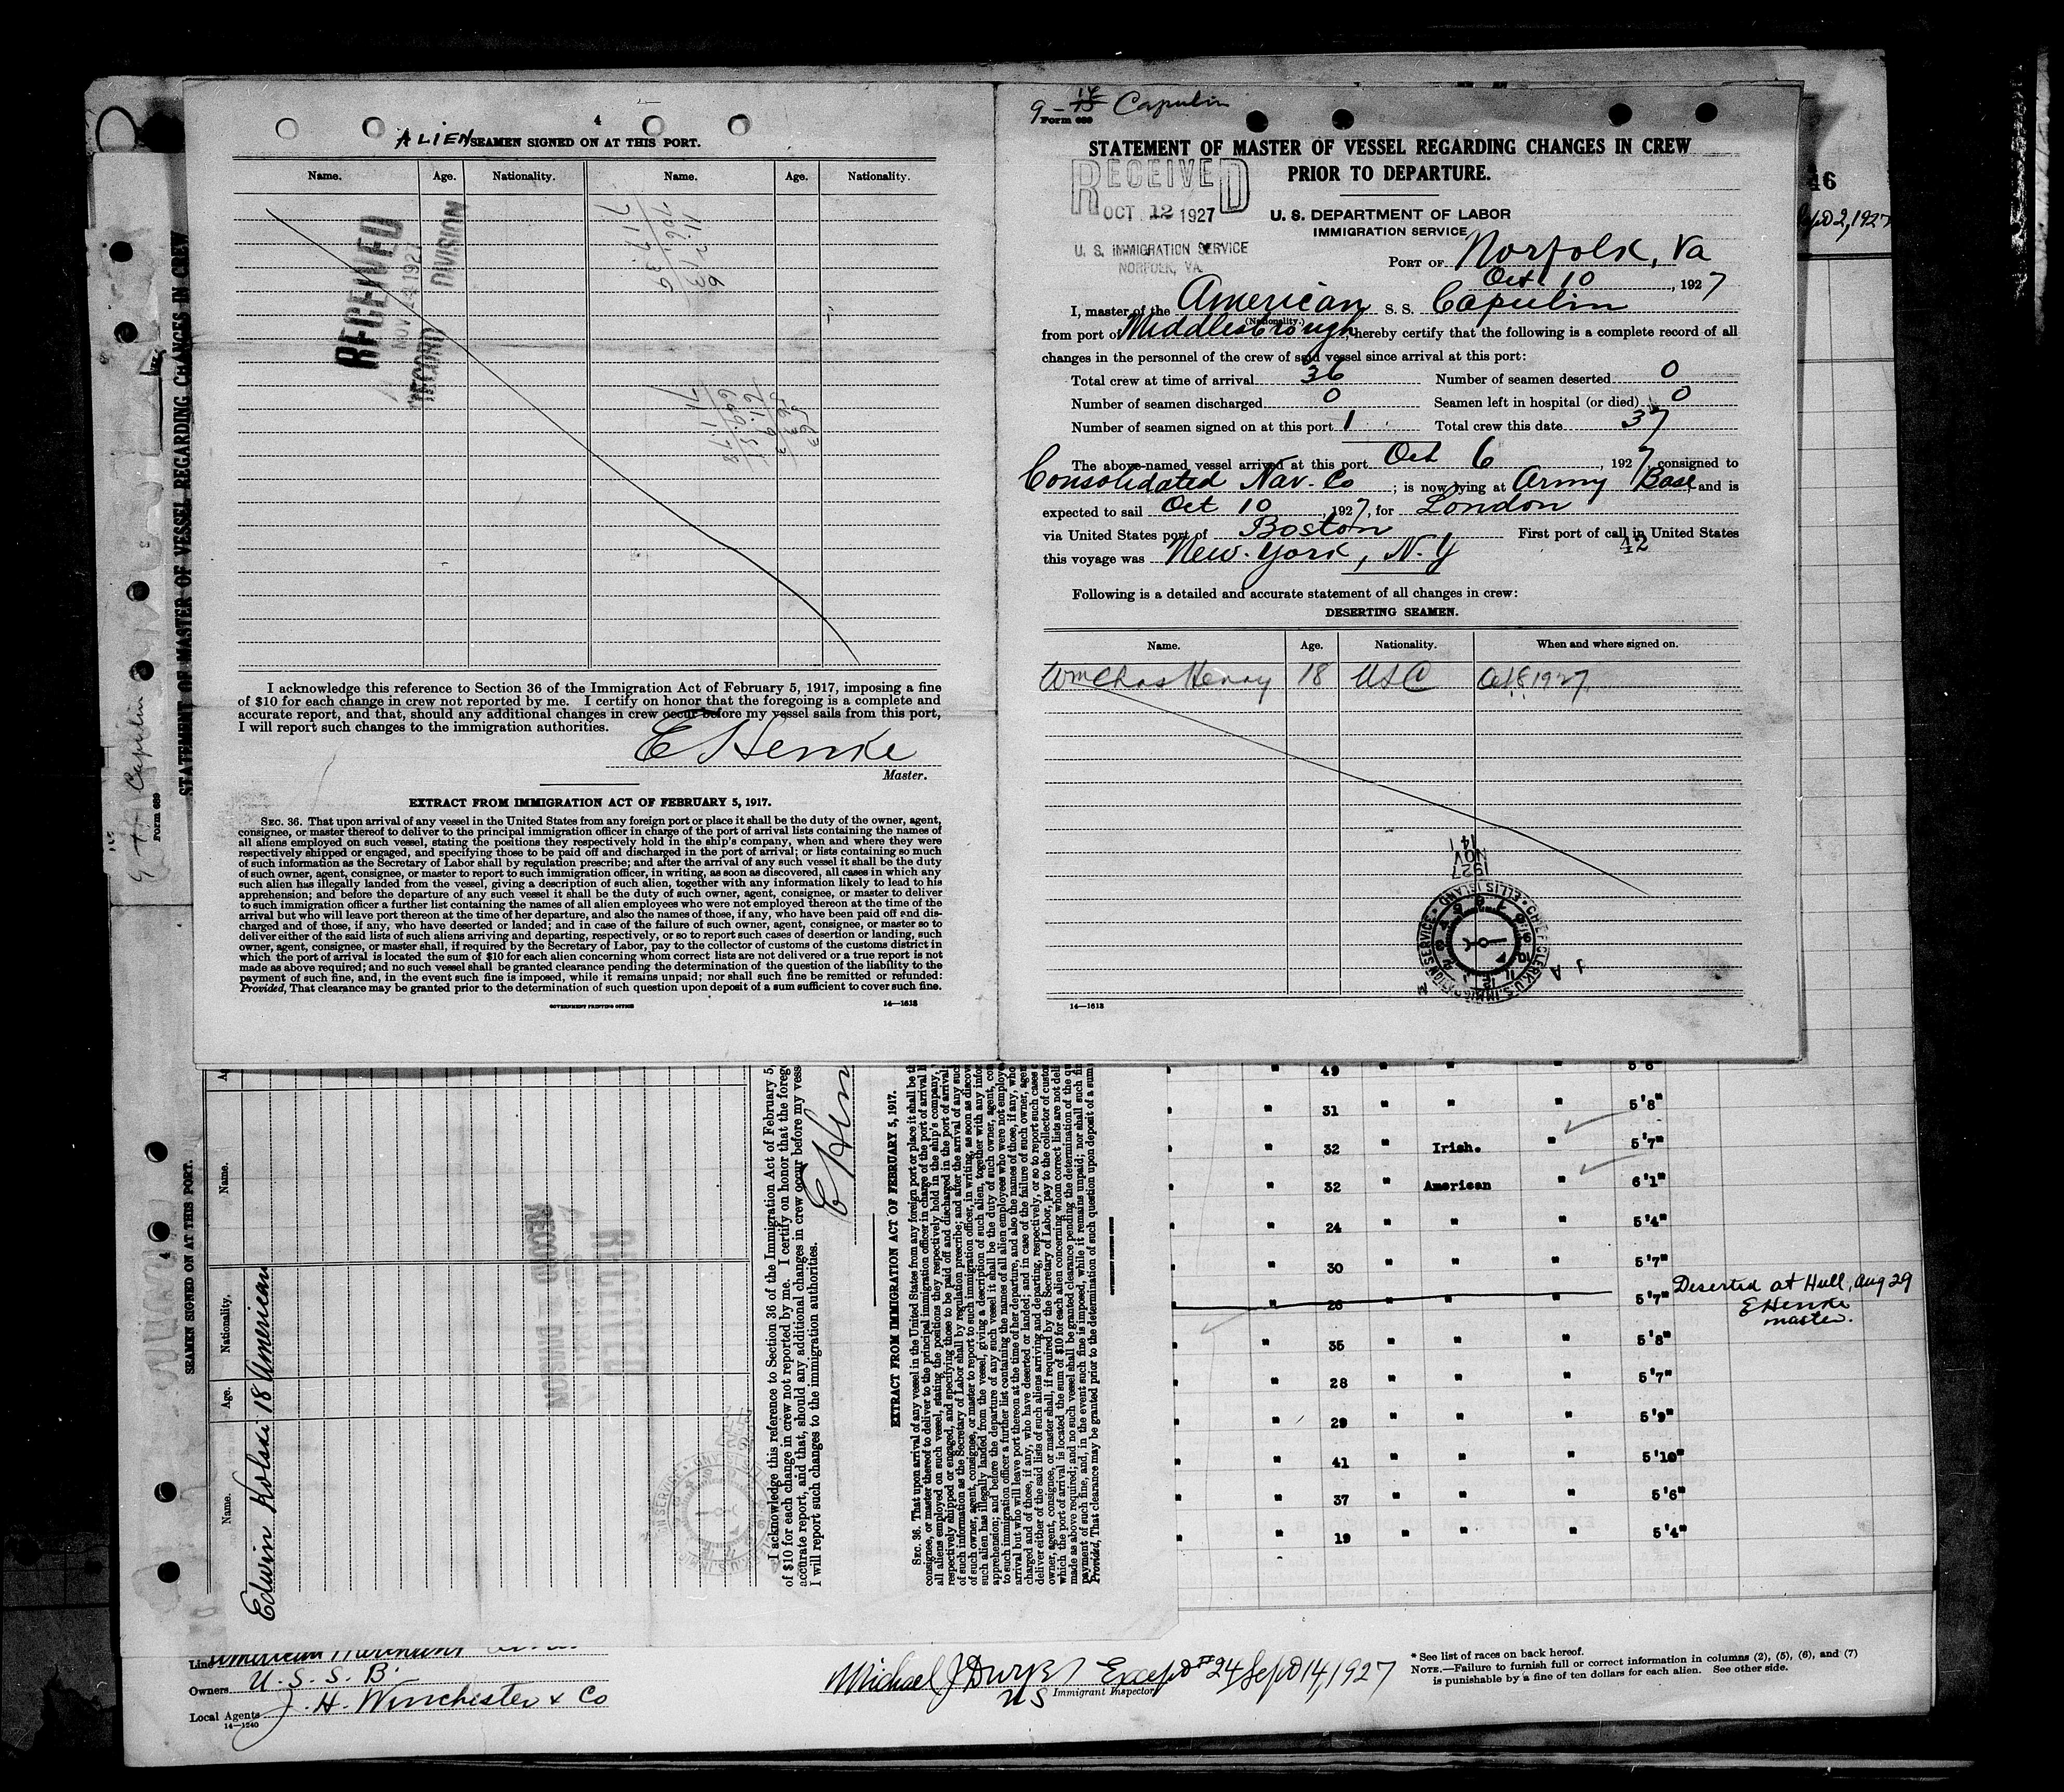 4
ALIEN SEAMEN SIGNED ON AT THIS PORT.
Name. Age. Nationality. Name. Age. Nationality.
RECEIVED
NOV 24 1927
RECORD DIVISION
I acknowledge this reference to Section 36 of the Immigration Act of February 5, 1917, imposing a fine
of $10 for each change in crew not reported by me. I certify on honor that the foregoing is a complete and
accurate report, and that, should any additional changes in crew occur before my vessel sails from this port,
I will report such changes to the immigration authorities.
E Henke
Master.
EXTRACT FROM IMMIGRATION ACT OF FEBRUARY 5, 1917.
SEC. 36. That upon arrival of any vessel in the United States from any foreign port or place it shall be the duty of the owner, agent,
consignee, or master thereof to deliver to the principal immigration officer in charge of the port of arrival lists containing the names of
all aliens employed on such vessel, stating the positions they respectively hold in the ship's company, when and where they were
respectively shipped or engaged, and specifying those to be paid off and discharged in the port of arrival; or lists containing so much
of such information as the Secretary of Labor shall by regulation prescribe; and after the arrival of any such vessel it shall be the duty
of such owner, agent, consignee, or master to report to such immigration officer, in writing, as soon as discovered, all cases in which any
such alien has illegally landed from the vessel, giving a description of such alien, together with any information likely to lead to his
apprehension; and before the departure of any such vessel it shall be the duty of such owner, agent, consignee, or master to deliver
to such immigration officer a further list containing the names of all alien employees who were not employed thereon at the time of the
arrival but who will leave port thereon at the time of her departure, and also the names of those, if any, who have been paid off and dis-
charged and of those, if any, who have deserted or landed; and in case of the failure of such owner, agent, consignee, or master so to
deliver either of the said lists of such aliens arriving and departing, respectively, or so to report such cases of desertion or landing, such
owner, agent, consignee, or master shall, if required by the Secretary of Labor, pay to the collector of customs of the customs district in
which the port of arrival is located the sum of $10 for each alien concerning whom correct lists are not delivered or a true report is not
made as above required; and no such vessel shall be granted clearance pending the determination of the question of the liability to the
payment of such fine, and, in the event such fine is imposed, while it remains unpaid; nor shall such fine be remitted or refunded:
Provided, That clearance may be granted prior to the determination of such question upon deposit of a sum sufficient to cover such fine.
GOVERNMENT PRINTING OFFICE 14—1618
9 - 14 Capulin
Form 689
STATEMENT OF MASTER OF VESSEL REGARDING CHANGES IN CREW
PRIOR TO DEPARTURE.
RECEIVED
OCT 12 1927
U. S. IMMIGRATION SERVICE
NORFOLK, VA.
U. S. DEPARTMENT OF LABOR
IMMIGRATION SERVICE
PORT OF Norfolk, Va
Oct 10, 1927
I, master of the American S. S. Capulin
(Nationality.)
from port of Middlesbrough, hereby certify that the following is a complete record of all
changes in the personnel of the crew of said vessel since arrival at this port:
Total crew at time of arrival 36 Number of seamen deserted 0
Number of seamen discharged 0 Seamen left in hospital (or died) 0
Number of seamen signed on at this port 1 Total crew this date 37
The above-named vessel arrived at this port Oct 6, 1927, consigned to
Consolidated Nav. Co; is now lying at Army Base, and is
expected to sail Oct 10, 1927, for London
via United States port of Boston First port of call in United States
this voyage was New York, N.Y 42
Following is a detailed and accurate statement of all changes in crew:
DESERTING SEAMEN.
Name. Age. Nationality. When and where signed on.
Wm Chas Henry 18 USC Oct 8, 1927
1927
NOV
14
CHIEF CLERK U.S. IMMIGRATION SERVICE ELLIS ISLAND
14—1618
46
2, 1927
STATEMENT OF MASTER OF VESSEL REGARDING CHANGES IN CREW
9 - Capulin
Form 689
4
SEAMEN SIGNED ON AT THIS PORT.
Name. Age. Nationality. Name.
Edwin Kolski 18 American
RECEIVED
RECORD DIVISION
I acknowledge this reference to Section 36 of the Immigration Act of February 5,
of $10 for each change in crew not reported by me. I certify on honor that the
accurate report, and that, should any additional changes in crew occur before my
I will report such changes to the immigration authorities.
E Hen
EXTRACT FROM IMMIGRATION ACT OF FEBRUARY 5, 1917.
49 " 5'6"
" 31 " " " 5'8"
" 32 " Irish. " 5'7"
" 32 " American " 6'1"
" 24 " " " 5'4"
" 30 " " " 5'7"
" 26 " " " 5'7" Deserted at Hull, Aug 29
E Henke
master.
" 35 " " " 5'8"
" 28 " " " 5'7"
" 29 " " " 5'9"
" 41 " " " 5'10"
" 37 " " " 5'6"
" 19 " " " 5'4"
Line American Merchant
Owners U. S. S. B.
Local Agents J. H. Winchester & Co
14—1240
Michael J Dwyer Except #24 Sept 14, 1927
US Immigrant Inspector
* See list of races on back hereof.
NOTE.—Failure to furnish full or correct information in columns (2), (5), (6), and (7)
is punishable by a fine of ten dollars for each alien. See other side.